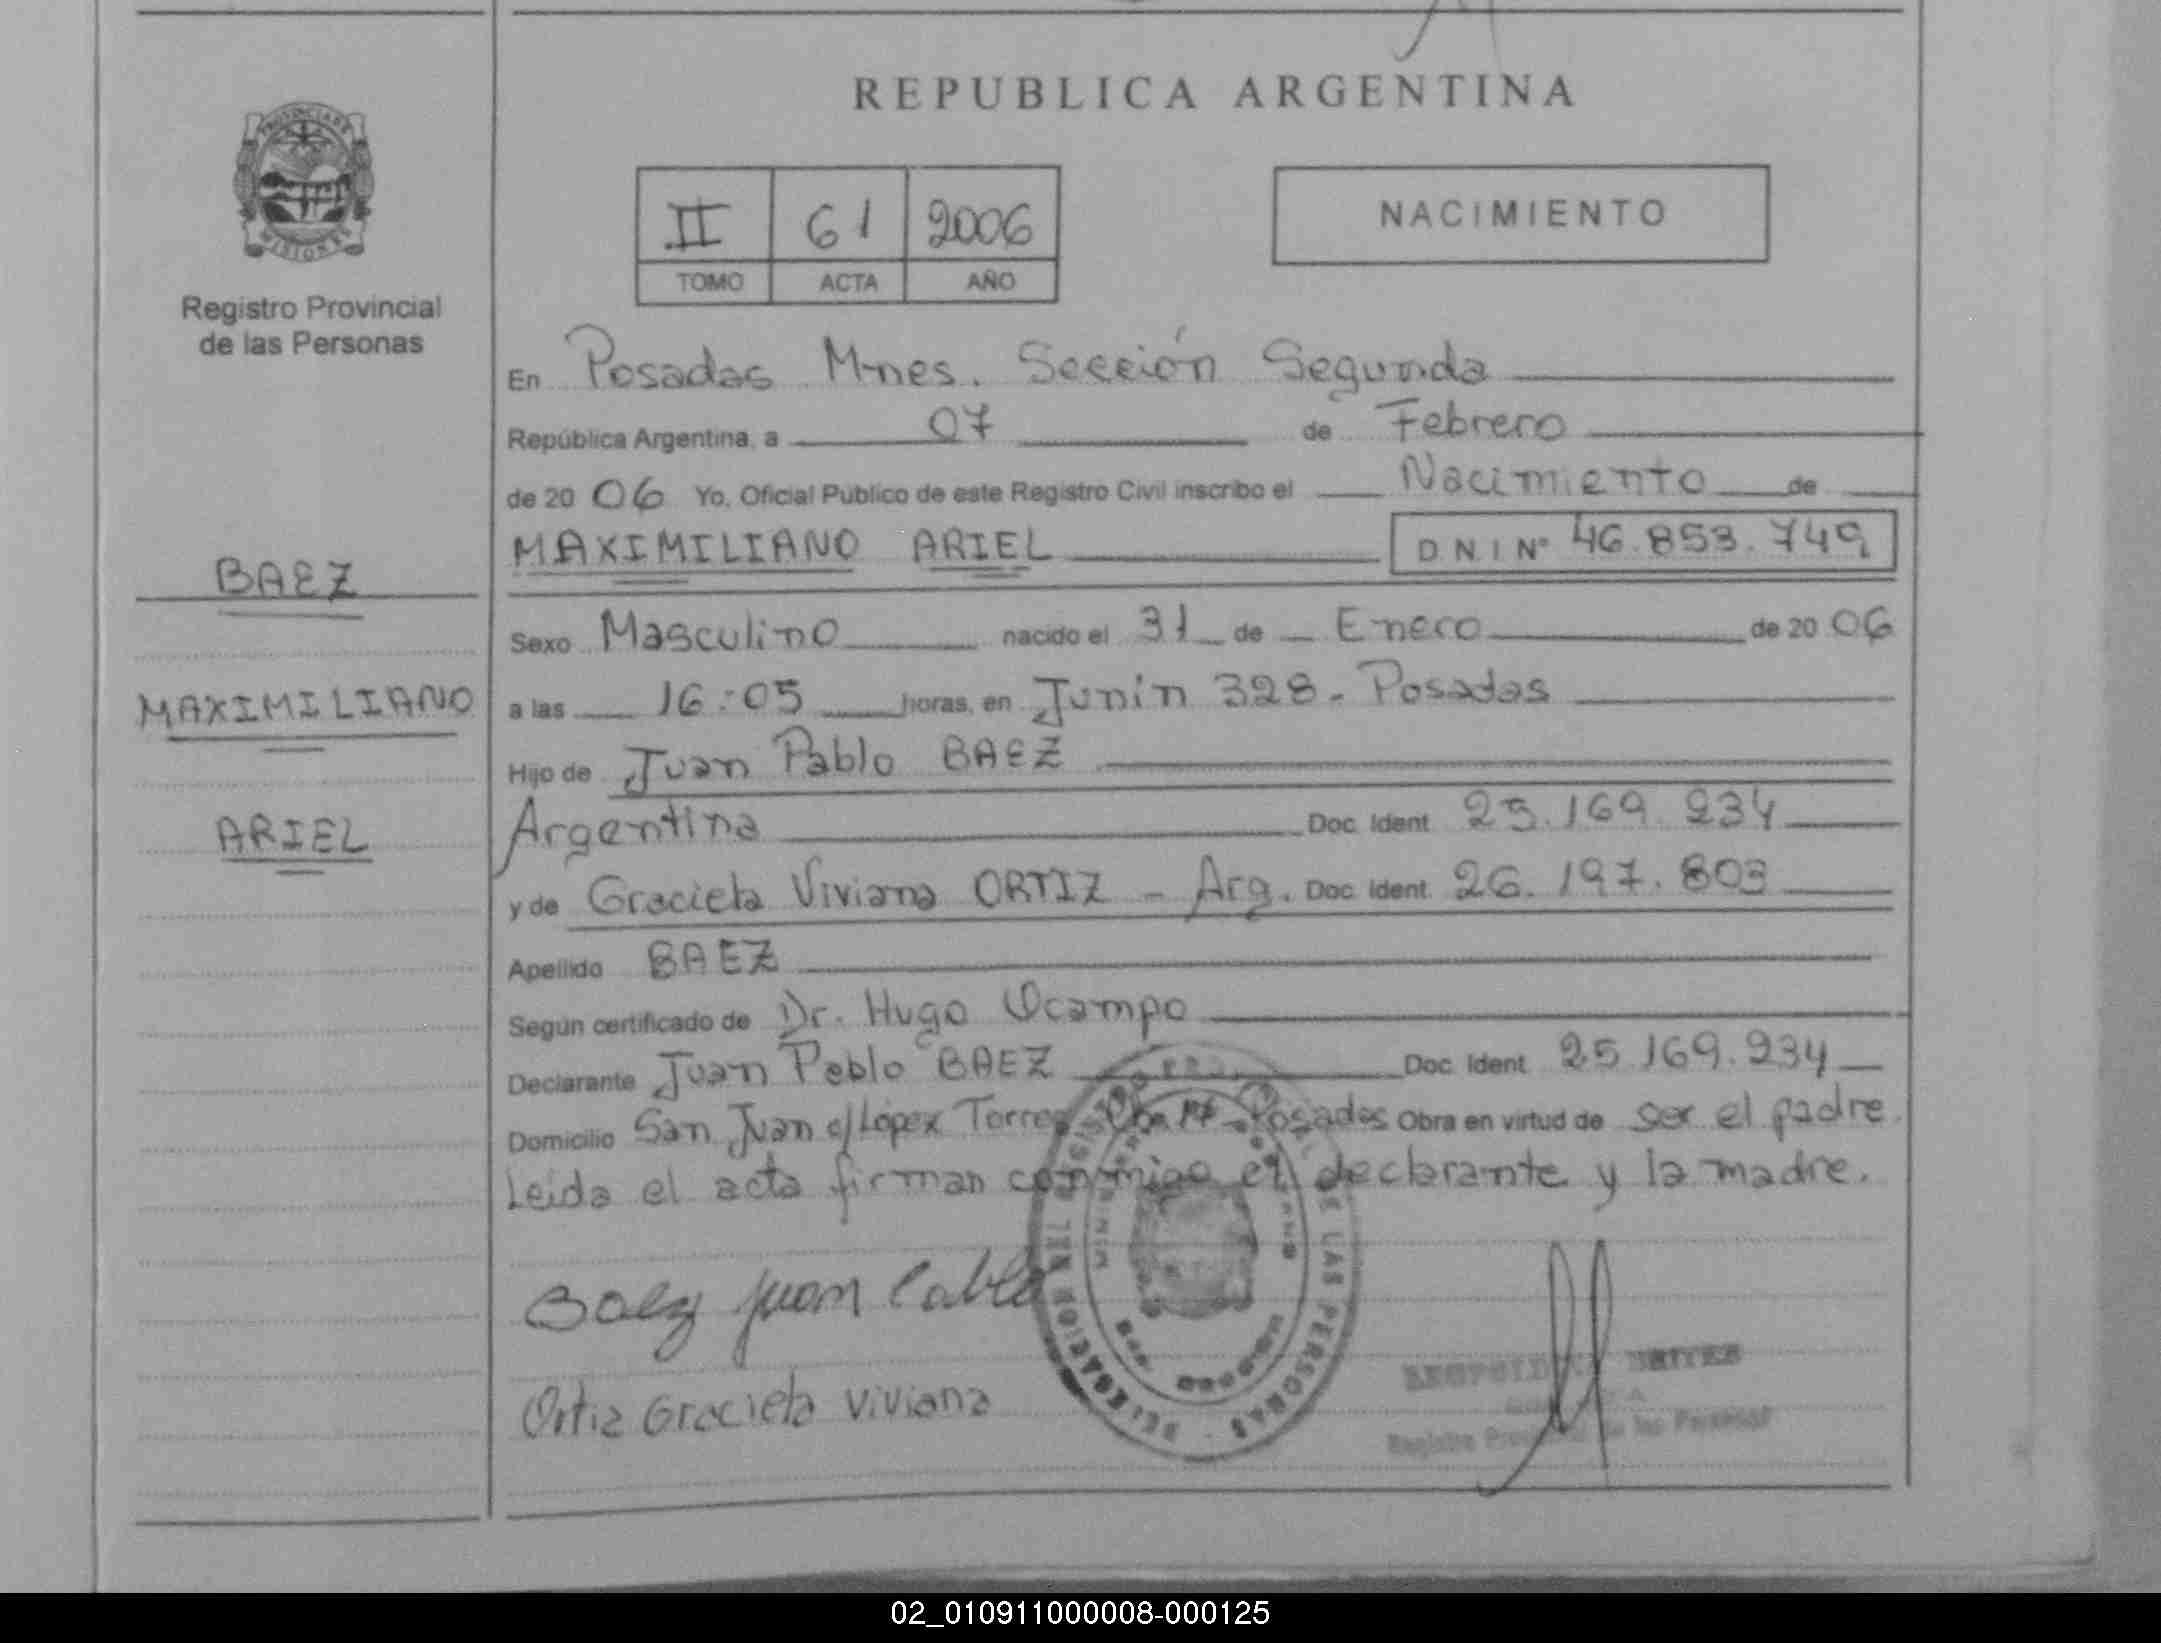 REPUBLICA ARGENTINA
PROVINCIA DE
MISIONES
Registro Provincial
de las Personas
II 61 2006
TOMO ACTA AÑO
NACIMIENTO
En Posadas Mnes. Sección Segunda
República Argentina, a 07 de Febrero
de 20 06 Yo, Oficial Público de este Registro Civil inscribo el Nacimiento de
MAXIMILIANO ARIEL D.N.I Nº 46.853.749
BAEZ
MAXIMILIANO
ARIEL
Sexo Masculino nacido el 31 de Enero de 20 06
a las 16:05 horas, en Junín 328 - Posadas
Hijo de Juan Pablo BAEZ
Argentina Doc. Ident. 25.169.234
y de Graciela Viviana ORTIZ - Arg. Doc. Ident. 26.197.803
Apellido BAEZ
Según certificado de Dr. Hugo Ocampo
Declarante Juan Pablo BAEZ Doc. Ident. 25.169.234
Domicilio San Juan c/ López Torres Posadas Obra en virtud de ser el padre
Leída el acta firman conmigo el declarante y la madre.
Baez Juan Pablo
Ortiz Graciela Viviana
DE LAS PERSONAS
Registro Provincial de las Personas
02_010911000008-000125